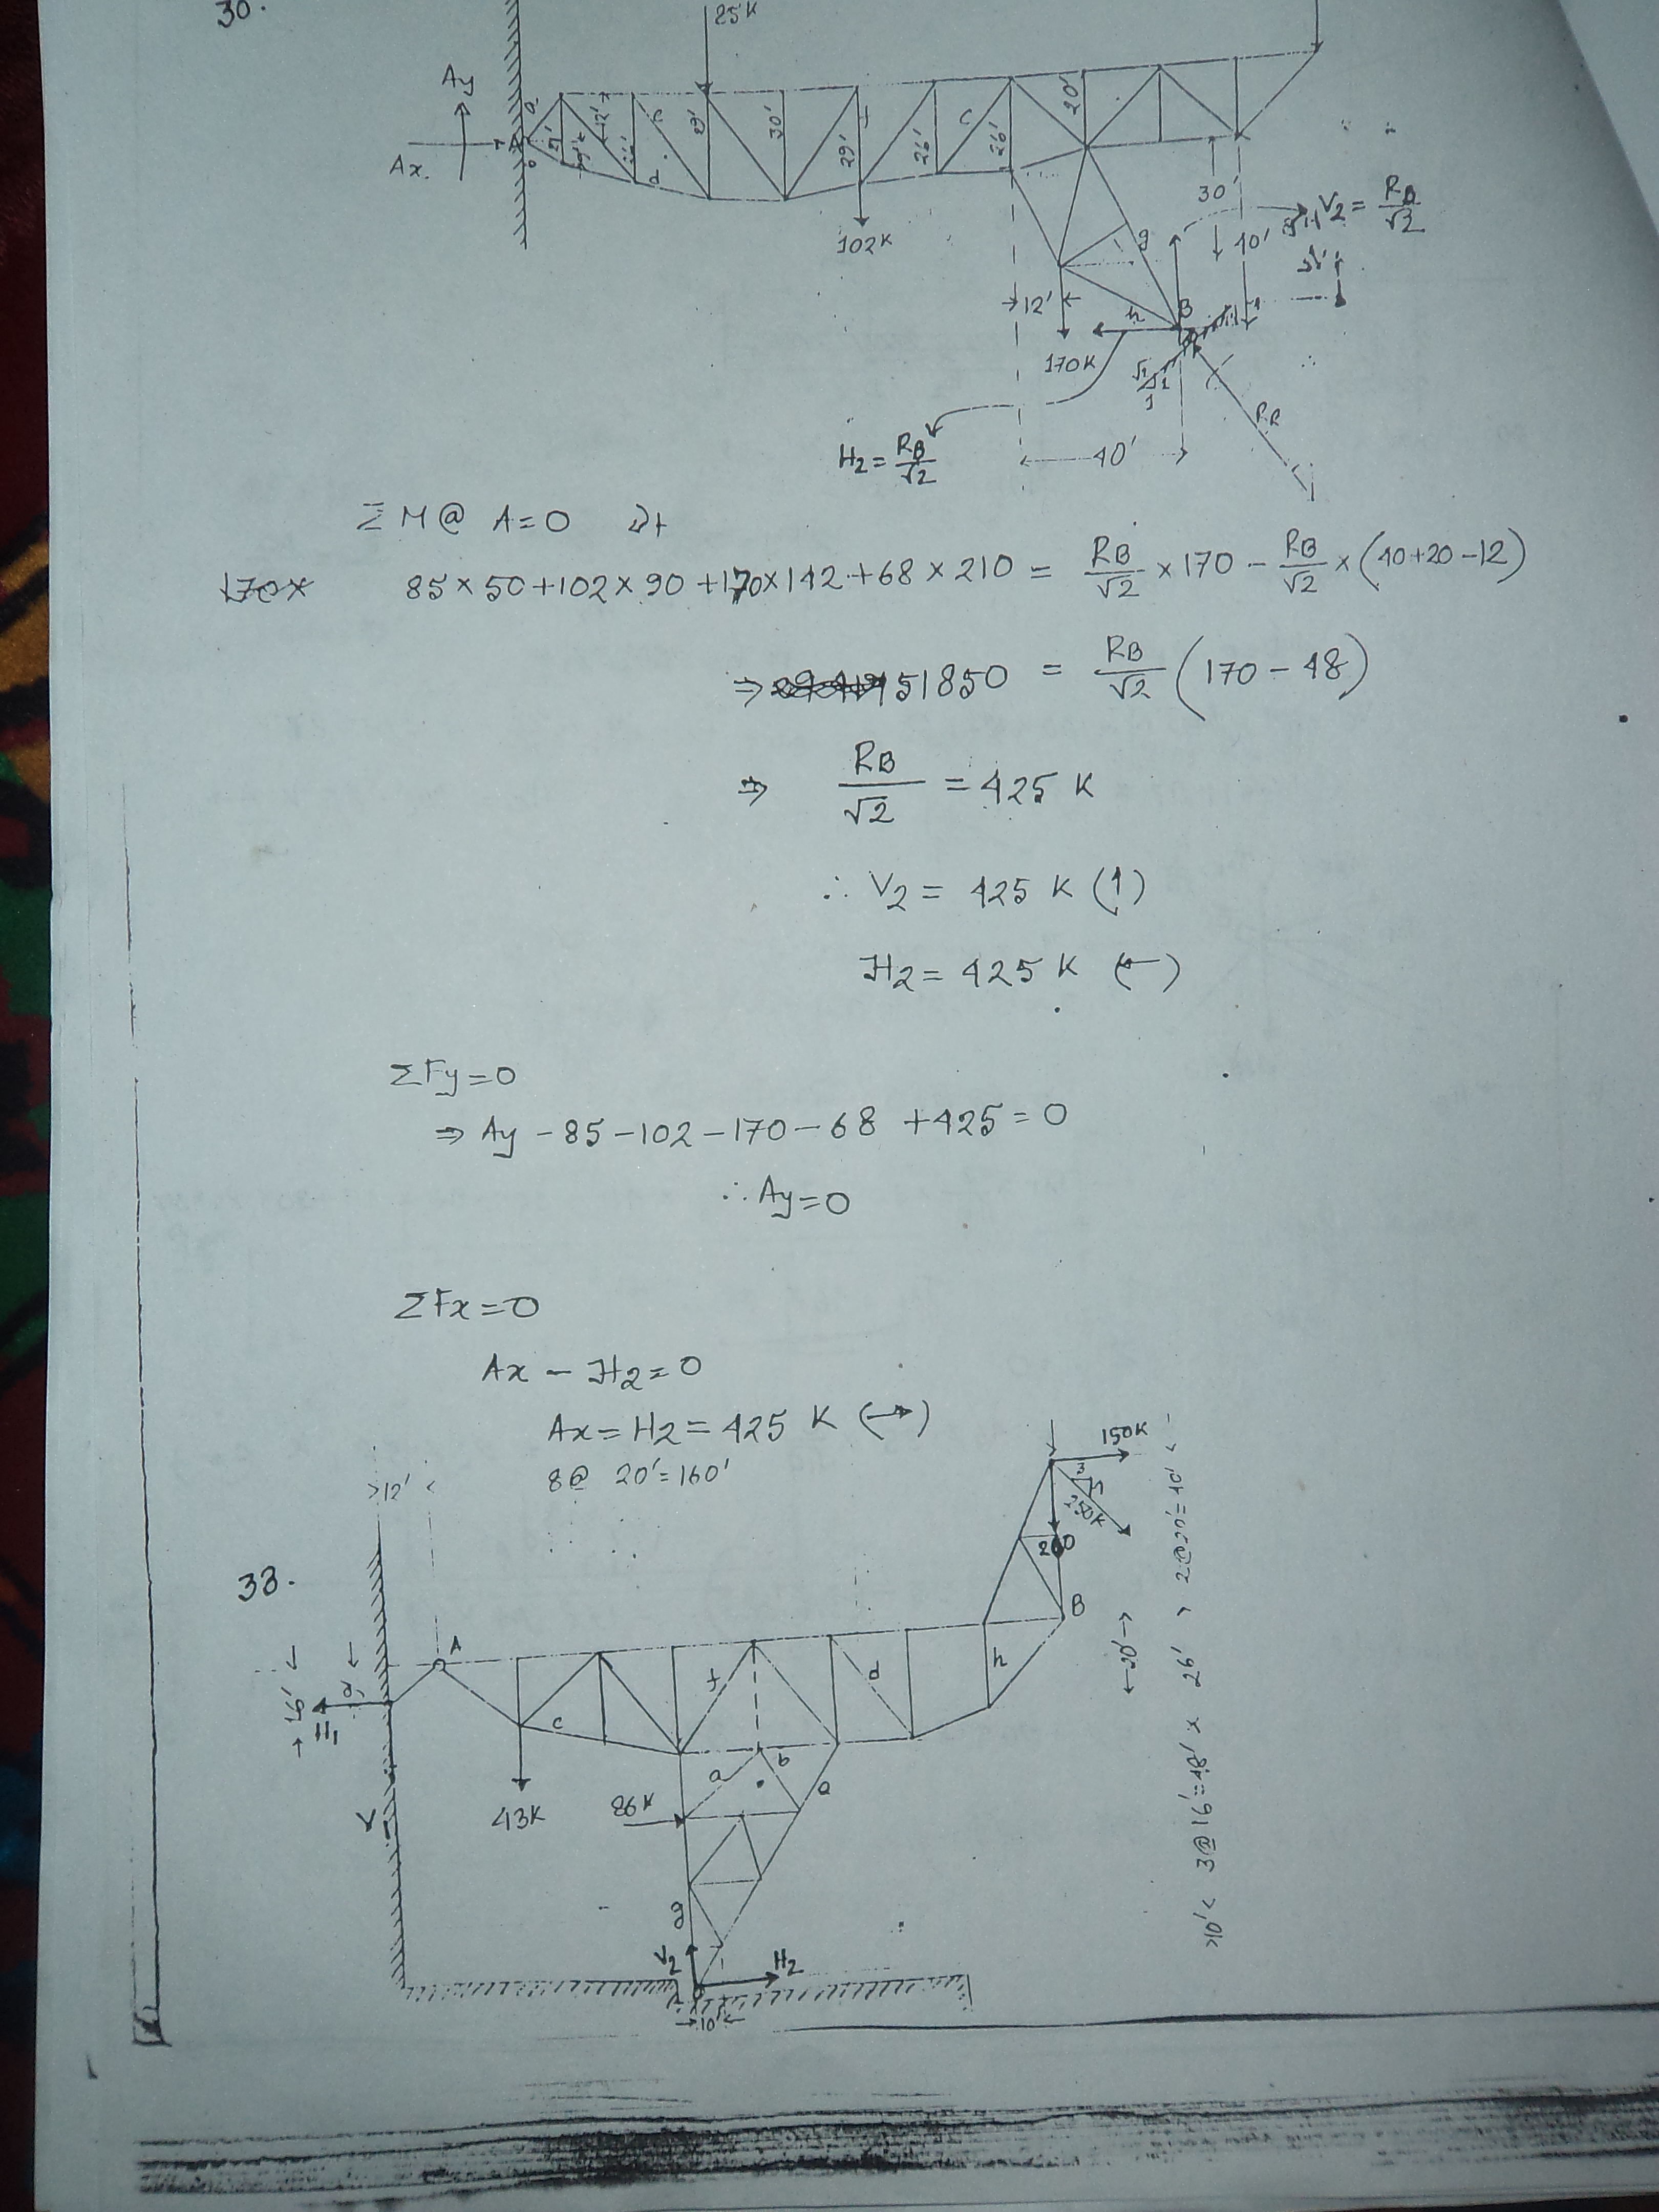 30.
25K
Ay
Ax.
29'
30'
29'
26'
C
26'
20'
d
102K
30'
40'
V2 = RB/√2
g
B
h
12'
170K
1
RR
H2 = RB/√2
40'
ΣM@ A=0
85×50+102×90+170×142+68×210 = RB/√2 ×170 - RB/√2 ×(40+20-12)
⇒ 51850 = RB/√2 (170-48)
⇒ RB/√2 = 425 K
∴ V2 = 425 K (↑)
H2 = 425 K (←)
ΣFy=0
⇒ Ay -85-102-170-68 +425=0
∴ Ay=0
ΣFx=0
Ax - H2=0
Ax=H2=425 K (→)
8@ 20'=160'
12'
150K
3
250K
33.
A
B
16'
9'
H1
f
d
h
c
a
b
a
43K
86K
V
g
V2
H2
10'
20'
10' 3@16'=48' 26'